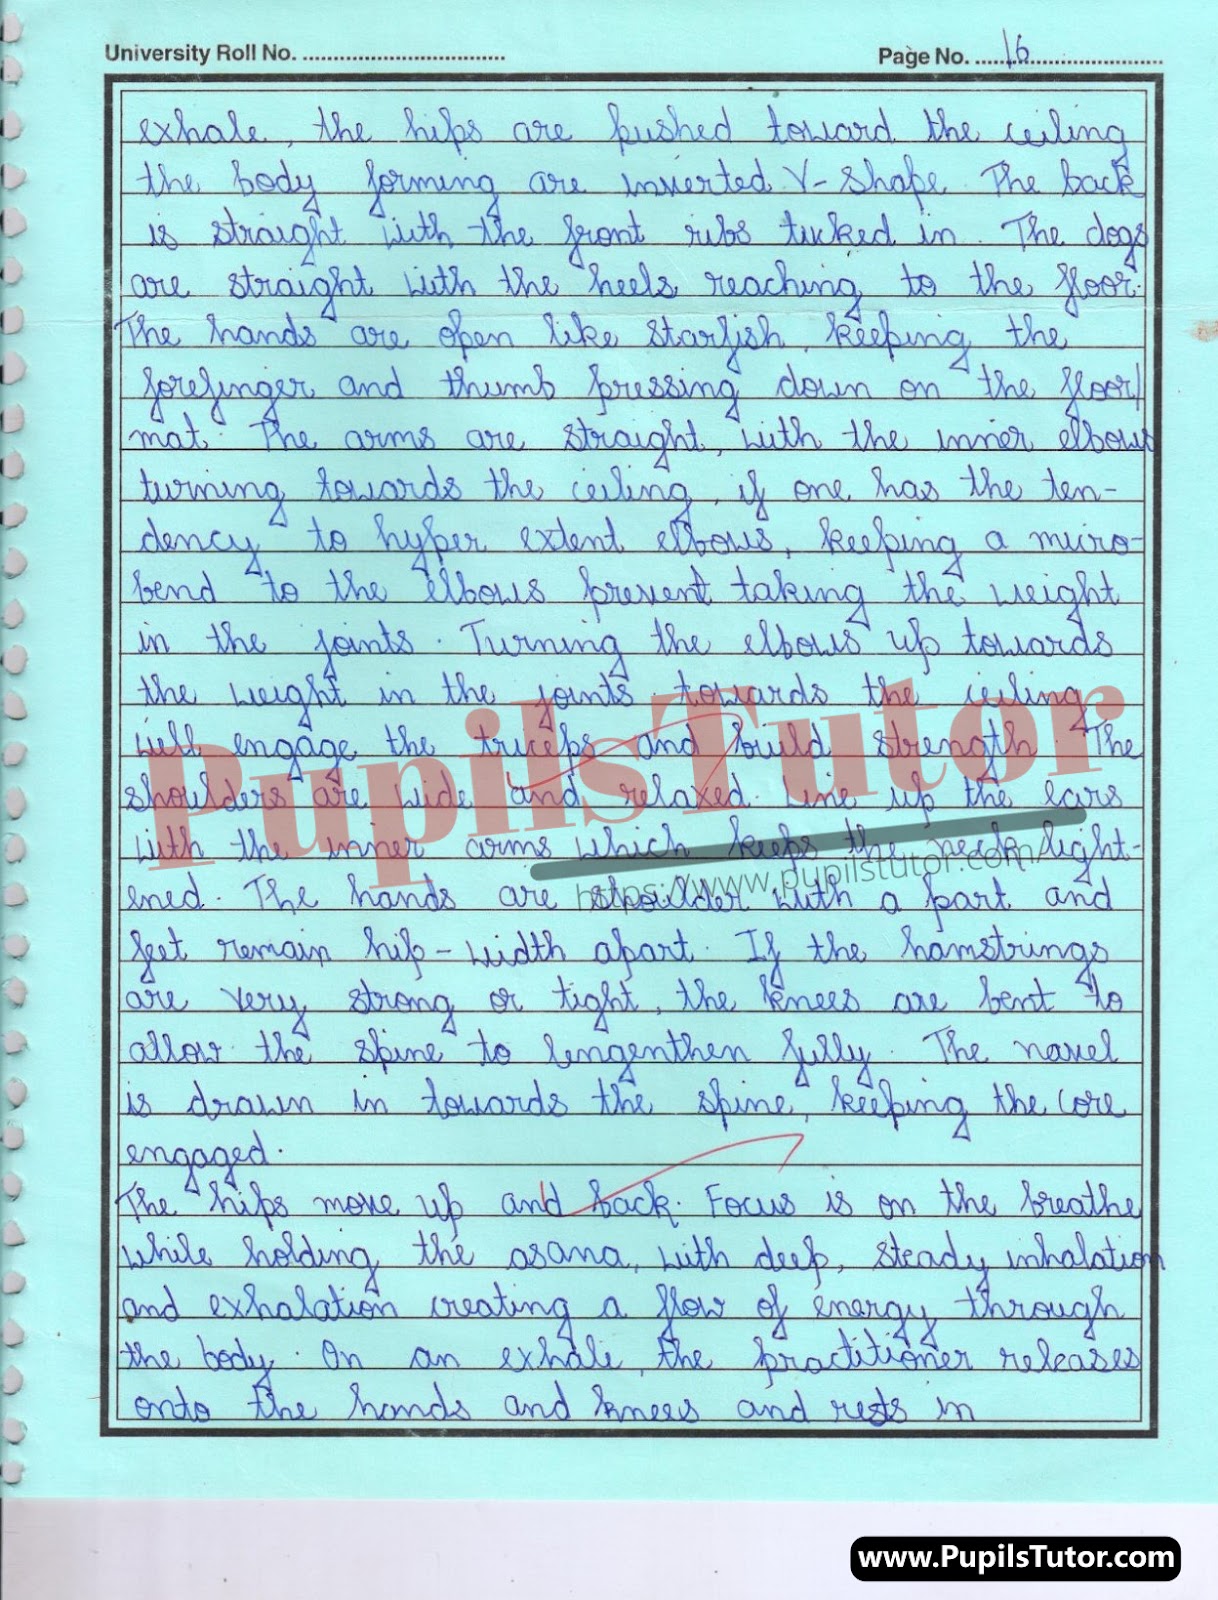 University Roll No. ....................................
Page No. ......16........................
exhale, the hips are pushed toward the ceiling
the body forming are inverted V-shape. The back
is straight with the front ribs tucked in. The dogs
are straight with the heels reaching to the floor.
The hands are open like starfish, keeping the
forefinger and thumb pressing down on the floor/
mat. The arms are straight, with the inner elbows
turning towards the ceiling, if one has the ten-
dency to hyper extent elbows, keeping a micro-
bend to the elbows prevent taking the weight
in the joints. Turning the elbows up towards
the weight in the joints towards the ceiling
will engage the triceps and build strength. The
shoulders are wide and relaxed. Line up the ears
with the inner arms which keeps the neck light-
ened. The hands are shoulder with a part and
feet remain hip-width apart. If the hamstrings
are very strong or tight, the knees are bent to
allow the spine to lengenthen fully. The navel
is drawn in towards the spine, keeping the core
engaged.
The hips move up and back. Focus is on the breathe
while holding the asana, with deep, steady inhalation
and exhalation creating a flow of energy through
the body. On an exhale, the practitioner releases
onto the hands and knees and rests in
PupilsTutor
https://www.pupilstutor.com/
www.PupilsTutor.com